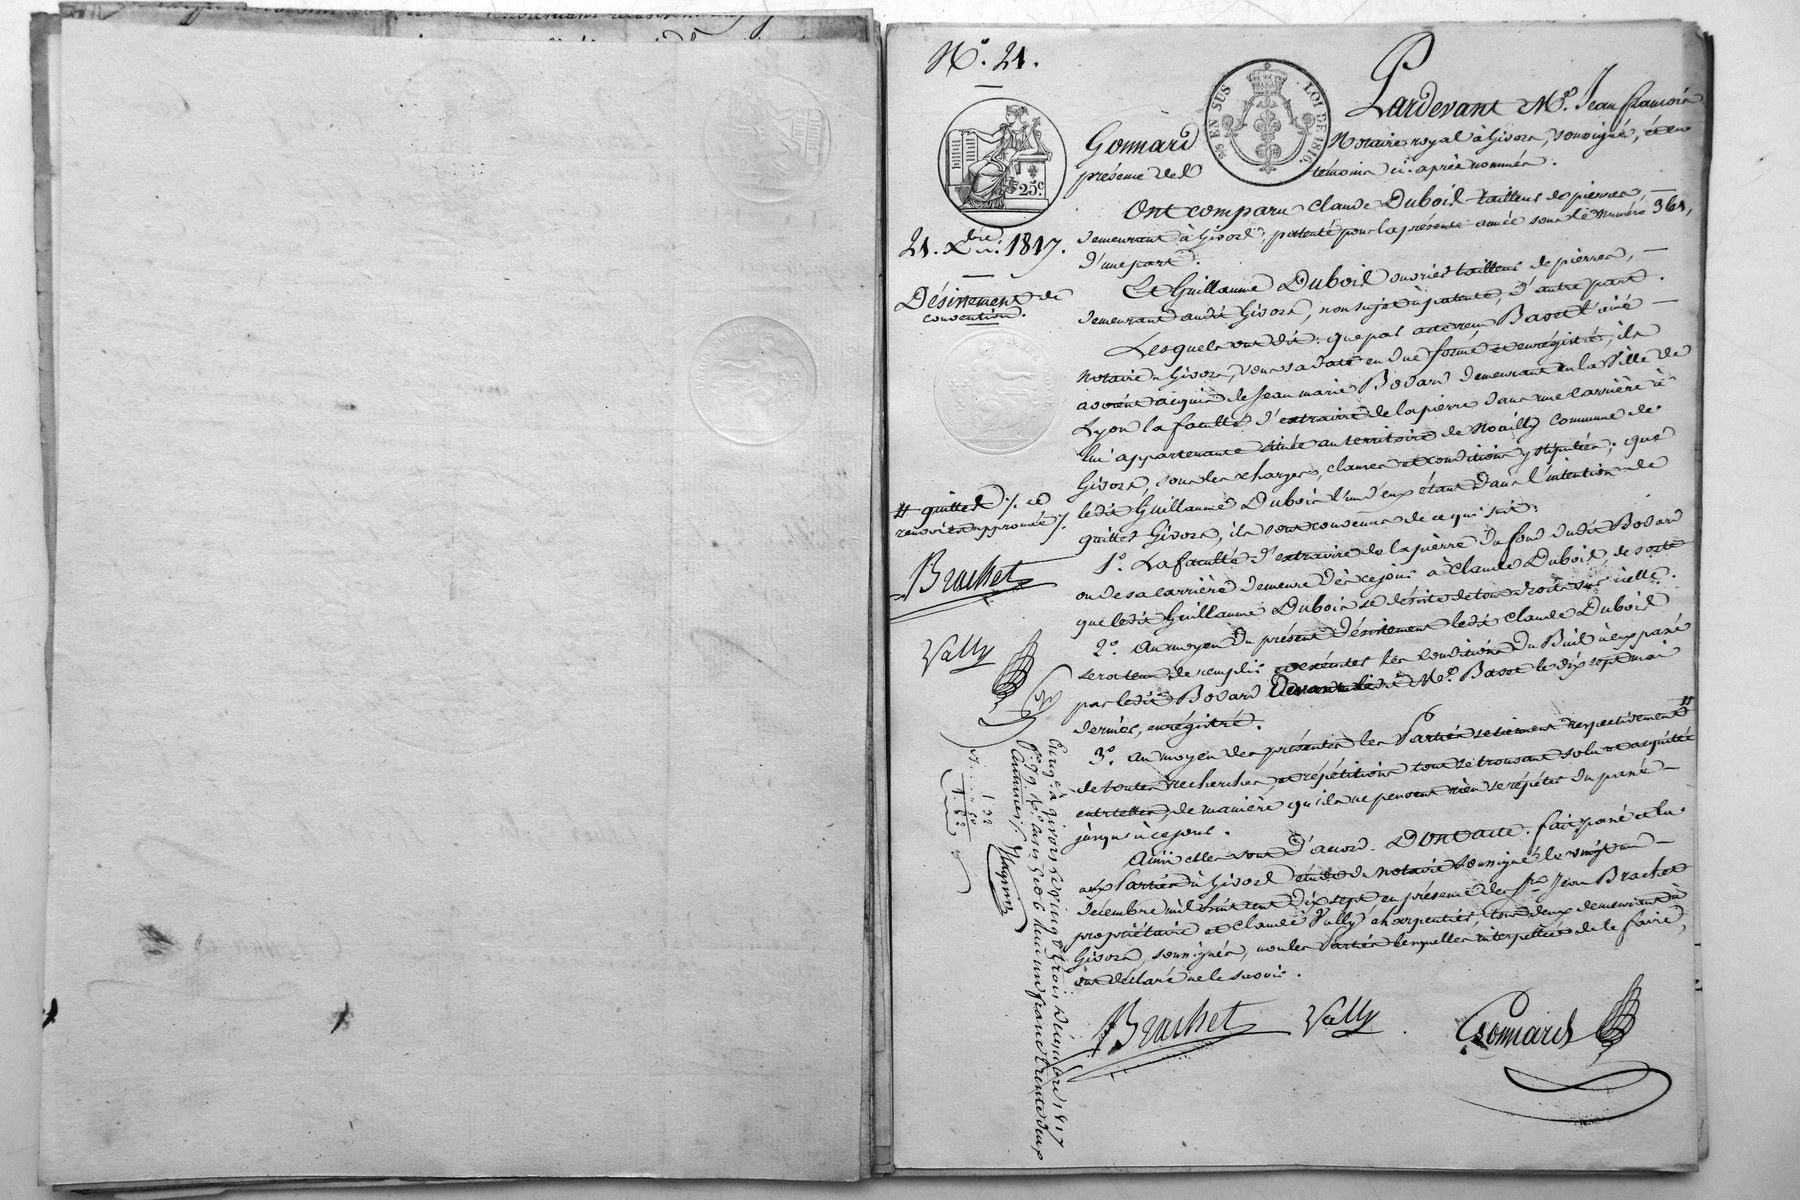 N.º 21.
25 EN SUS
LOI DE 1816.
25.c
21. Xbre. 1817.
Désistement de
convention.
Pardevant Me. Jean françois
Gonnard Notaire royal à Givors, soussigné, et en
présence des témoins ci-après nommés.
Ont comparu Claude Dubois tailleur de pierres,
demeurant à Givors, patenté pour la présente année sous le numéro 361,
d'une part.
Et Guillaume Dubois ouvrier tailleur de pierres,
demeurant audit Givors, non sujet à patente, d'autre part.
Lesquels ont dit: que par acte reçu Basset l'ainé
notaire à Givors, sous sa date en due forme et enregistré, ils
avoient acquis de Jean marie Bodard demeurant en la Ville de
Lyon la faculté d'extraire de la pierre dans une carrière à
lui appartenante située au territoire de Moailly commune de
Givors, sous les charges, clauses et conditions y stipulées; que
ledit Guillaume Dubois l'un d'eux étant dans l'intention de
quitter Givors, ils sont convenus de ce qui suit:
1.º La faculté d'extraire de la pierre du fond dudit Bodard
ou de sa carrière demeure dès ce jour à Claude Dubois de sorte
que ledit Guillaume Dubois se désiste de tous droits sur icelle.
2.º Au moyen du présent désistement ledit Claude Dubois
sera tenu de remplir et exécuter les conditions du Bail à eux passé
par ledit Bodard devant ledit Me. Basset le dix sept mai
dernier, enregistré.
3.º Au moyen des présentes les Parties se tiennent respectivement #
de toutes recherches, et répétitions tout se trouvant soldé et acquitté
entr'elles, de manière qu'ils ne peuvent rien se répéter du passé
jusqu'à ce jour.
Ainsi elles sont d'accord. DONT ACTE. fait, passé et lu
aux Parties à Givors étude du notaire soussigné le vingt un
décembre mil huit cent dix sept en présence des Srs. Jean Brachet
propriétaire et Claude Vally charpentier, tous deux demeurant à
Givors, soussignés, non les Parties lesquelles interpellées de le faire,
ont déclaré ne le savoir.
# quittes /. ce
renvoi est approuvé /.
Brachet
Vally
Enregé à Givors le vingt trois Décembre 1817
reçu un franc trente deux
Brachet Vally Gonnard